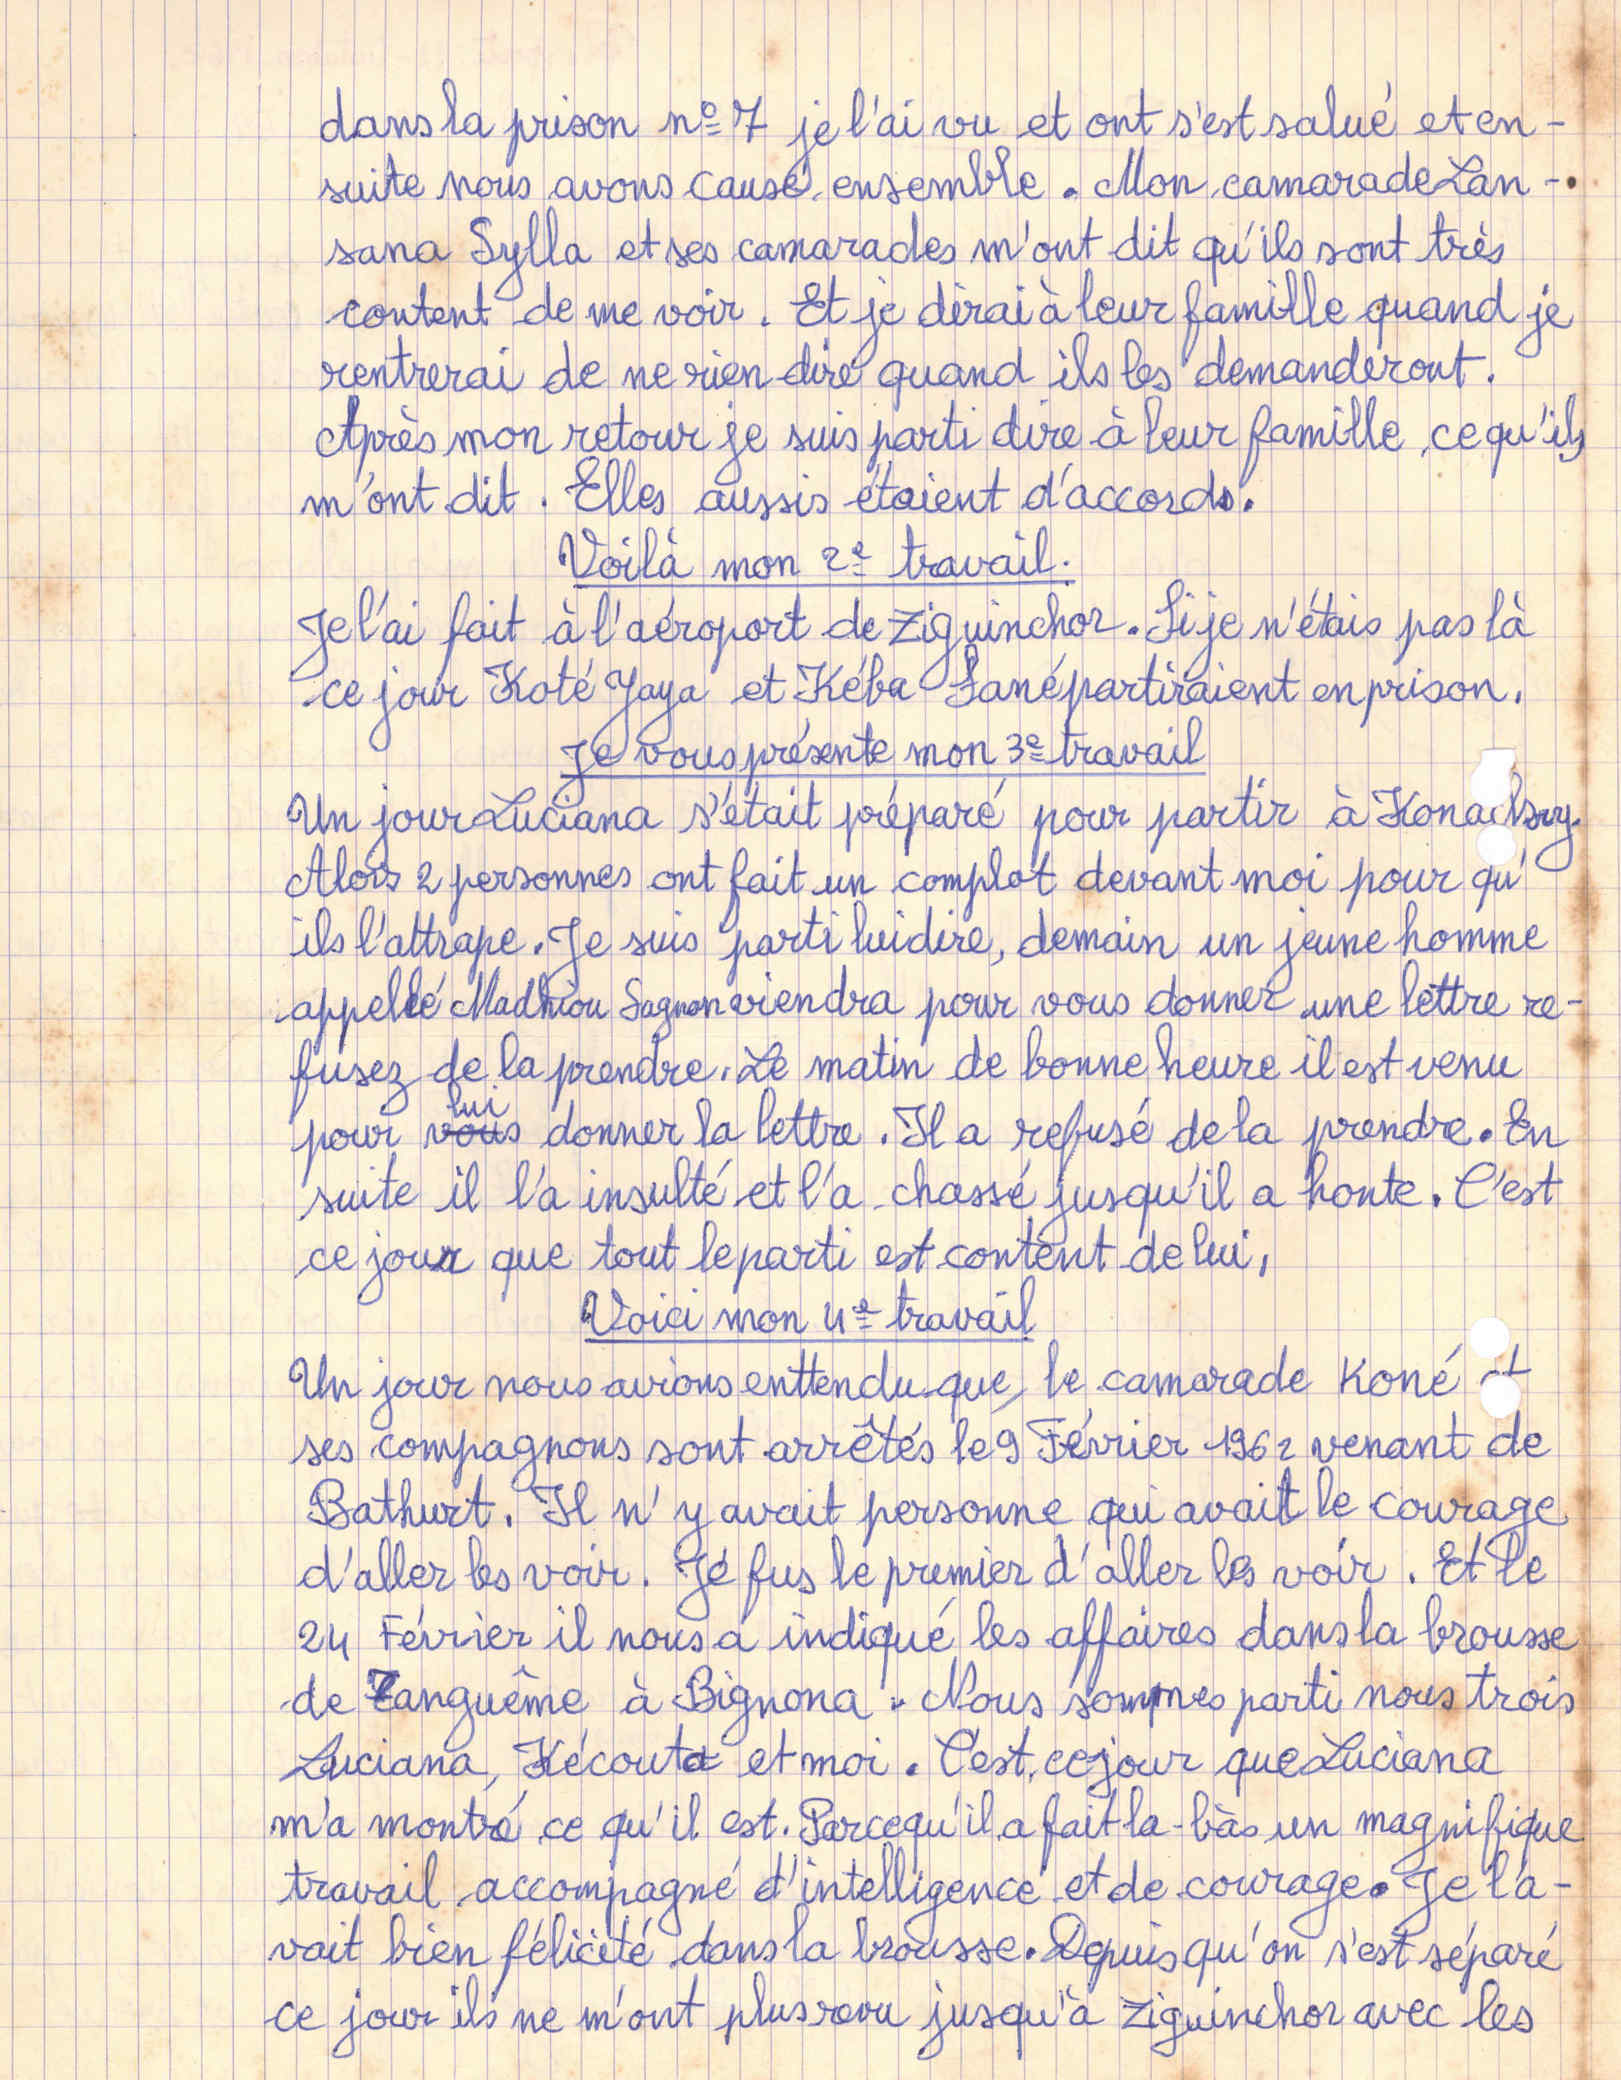 dans la prison nº 7 je l'ai vu et ont s'est salué et en-
suite nous avons causé ensemble. Mon camarade Lan-
sana Sylla et ses camarades m'ont dit qu'ils sont très
content de me voir. Et je dirai à leur famille quand je
rentrerai de ne rien dire quand ils les demanderont.
Après mon retour je suis parti dire à leur famille ce qu'ils
m'ont dit. Elles aussis étaient d'accords.
Voilà mon 2e travail.
Je l'ai fait à l'aéroport de Ziguinchor. Si je n'étais pas là
ce jour Koté Yaya et Kéba Sané partiraient en prison.
Je vous présente mon 3e travail
Un jour Luciana s'était préparé pour partir à Konackry.
Alors 2 personnes ont fait un complot devant moi pour qu'
ils l'attrape. Je suis parti lui dire, demain un jeune homme
appellé Madhiou Sagnan viendra pour vous donner une lettre re-
fusez de la prendre. Le matin de bonne heure il est venu
pour vous lui donner la lettre. Il a refusé de la prendre. En
suite il l'a insulté et l'a chassé jusqu'il a honte. C'est
ce jour que tout le parti est content de lui,
Voici mon 4e travail
Un jour nous avions enttendu que, le camarade Koné et
ses compagnons sont arrêtés le 9 Février 1962 venant de
Bathurt. Il n'y avait personne qui avait le courage
d'aller les voir. Je fus le premier d'aller les voir. Et le
24 Février il nous a indiqué les affaires dans la brousse
de Tanguême à Bignona. Nous sommes parti nous trois
Luciana, Kécouta et moi. C'est ce jour que Luciana
m'a montré ce qu'il est. Parcequ'il a fait la-bàs un magnifique
travail accompagné d'intelligence et de courage. Je l'a-
vait bien félicité dans la brousse. Depuis qu'on s'est séparé
ce jour ils ne m'ont plus revu jusqu'à Ziguinchor avec les